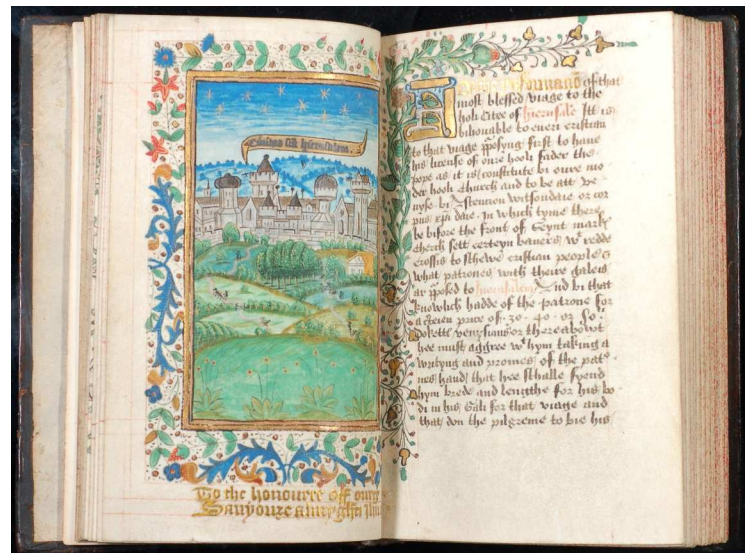 Civitas
To the honoure off oure
Sauyoure
of that
most blessed viage to the
holi Citee of Hierusalē Itt is
bihouable to eueri cristian
to that viage pposyng first to haue
his license of oure hooli fader the
pope as it is constitute bi oure mo
der hooli church and to be att ve
nyse bi Ascencion witsondaie or cor
pus xpi daie. In which tyme there
be bifore the front of Seynt mark
cherch sett certeyn baners wt redde
crossis to schewe cristian people
what patrones with theire galeis
ar pposed to hierusalem And bi that
knowlich hadde of the patrone for
a certen price of .30. 40. or 50.
Dokettes or thereabowt
hee must aggree wt hym taking a
wrytyng and promes of the pat
nes hand that hee schalle fynd
hym brede and lengthe for his bo
di in his Gali for that viage and
that don the pilgreme to bie his